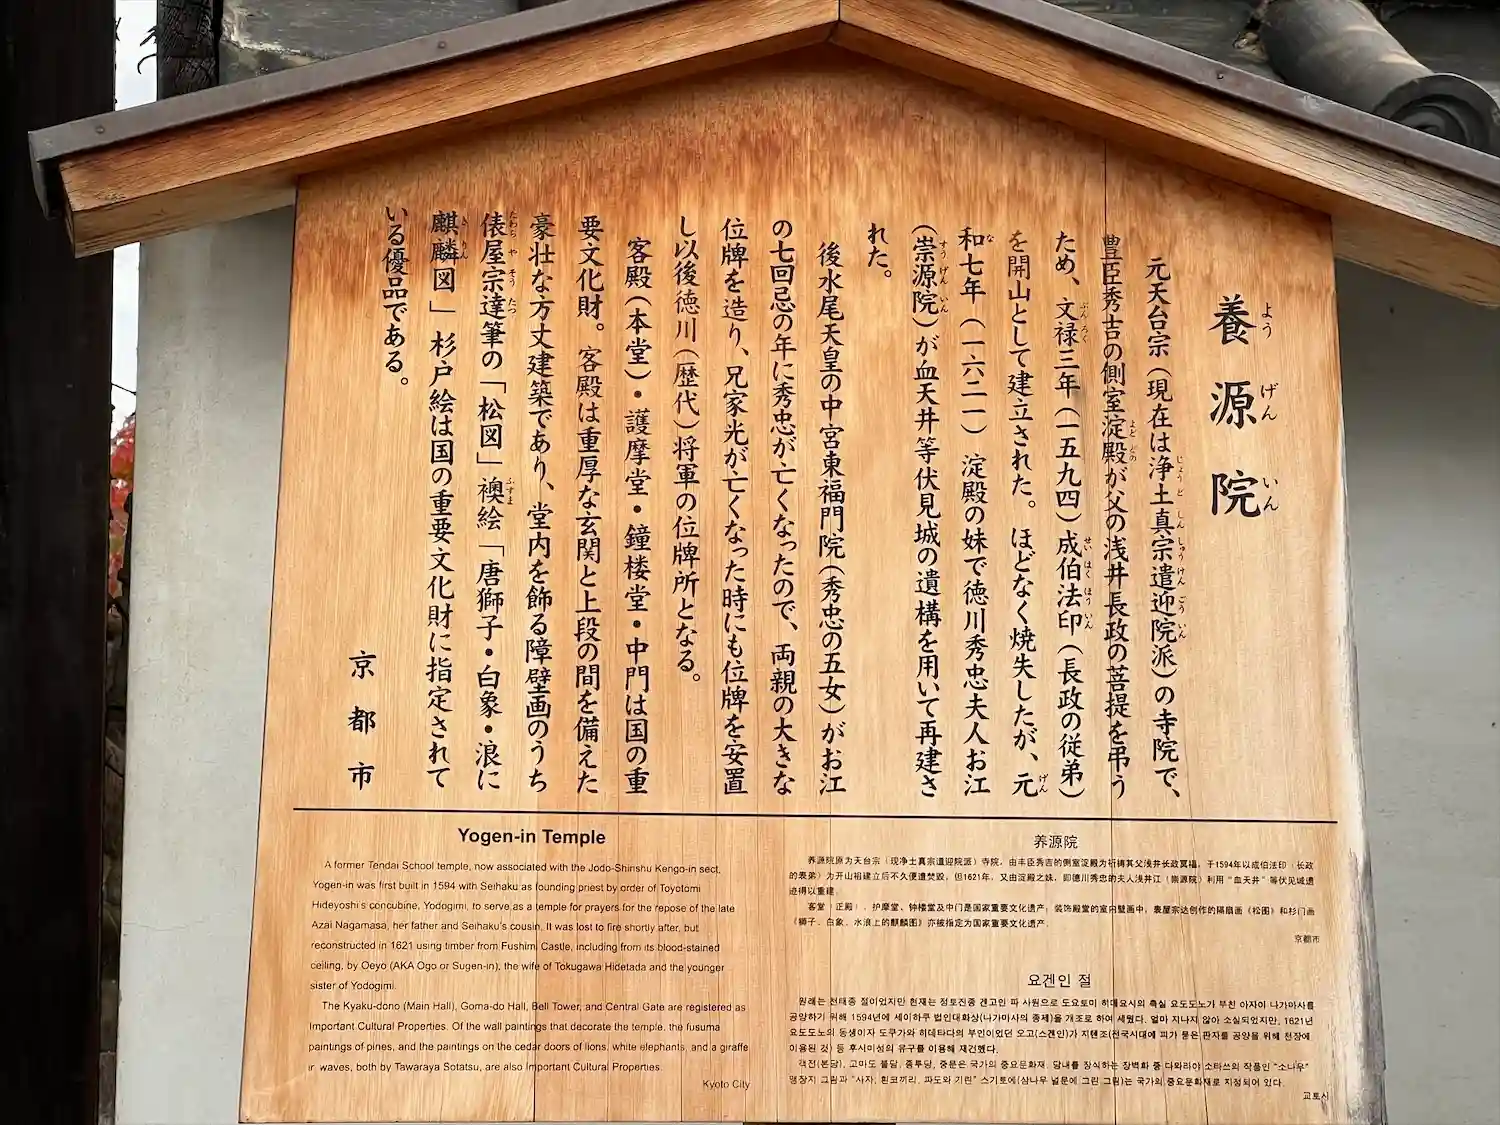 養源院
元天台宗（現在は浄土真宗遣迎院派）の寺院で、
豊臣秀吉の側室淀殿が父の浅井長政の菩提を弔う
ため、文禄三年（一五九四）成伯法印（長政の従弟）
を開山として建立された。ほどなく焼失したが、元
和七年（一六二一）淀殿の妹で徳川秀忠夫人お江
（崇源院）が血天井等伏見城の遺構を用いて再建さ
れた。
後水尾天皇の中宮東福門院（秀忠の五女）がお江
の七回忌の年に秀忠が亡くなったので、両親の大きな
位牌を造り、兄家光が亡くなった時にも位牌を安置
し以後徳川（歴代）将軍の位牌所となる。
客殿（本堂）・護摩堂・鐘楼堂・中門は国の重
要文化財。客殿は重厚な玄関と上段の間を備えた
豪壮な方丈建築であり、堂内を飾る障壁画のうち
俵屋宗達筆の「松図」襖絵「唐獅子・白象・浪に
麒麟図」杉戸絵は国の重要文化財に指定されて
いる優品である。
京都市
Yogen-in Temple
A former Tendai School temple, now associated with the Jodo-Shinshu Kengo-in sect,
Yogen-in was first built in 1594 with Seihaku as founding priest by order of Toyotomi
Hideyoshi's concubine, Yodogimi, to serve as a temple for prayers for the repose of the late
Azai Nagamasa, her father and Seihaku's cousin. It was lost to fire shortly after, but
reconstructed in 1621 using timber from Fushimi Castle, including from its blood-stained
ceiling, by Oeyo (AKA Ogo or Sugen-in), the wife of Tokugawa Hidetada and the younger
sister of Yodogimi.
The Kyaku-dono (Main Hall), Goma-do Hall, Bell Tower, and Central Gate are registered as
Important Cultural Properties. Of the wall paintings that decorate the temple, the fusuma
paintings of pines, and the paintings on the cedar doors of lions, white elephants, and a giraffe
in waves, both by Tawaraya Sotatsu, are also Important Cultural Properties.
Kyoto City
养源院
养源院原为天台宗（现净土真宗遣迎院派）寺院，由丰臣秀吉的侧室淀殿为祈祷其父浅井长政冥福，于1594年以成伯法印（长政
的表弟）为开山祖建立后不久便遭焚毁，但1621年，又由淀殿之妹，即德川秀忠的夫人浅井江（崇源院）利用“血天井”等伏见城遗
迹得以重建。
客堂（正殿）、护摩堂、钟楼堂及中门是国家重要文化遗产；装饰殿堂的室内壁画中，表屋宗达创作的隔扇画《松图》和杉门画
《狮子、白象、水浪上的麒麟图》亦被指定为国家重要文化遗产。
京都市
요겐인 절
원래는 천태종 절이었지만 현재는 정토진종 겐고인 파 사원으로 도요토미 히데요시의 측실 요도도노가 부친 아자이 나가마사를
공양하기 위해 1594년에 세이하쿠 법인대화상(나가마사의 종제)을 개조로 하여 세웠다. 얼마 지나지 않아 소실되었지만, 1621년
요도도노의 동생이자 도쿠가와 히데타다의 부인이었던 오고(스겐인)가 지텐조(전국시대에 피가 묻은 판자를 공양을 위해 천장에
이용된 것) 등 후시미성의 유구를 이용해 재건했다.
객전(본당), 고마도 불당, 종루당, 중문은 국가의 중요문화재. 당내를 장식하는 장벽화 중 다와라야 소타쓰의 작품인 “소나무”
맹장지 그림과 “사자, 흰코끼리, 파도와 기린” 스기토에(삼나무 널문에 그린 그림)는 국가의 중요문화재로 지정되어 있다.
교토시